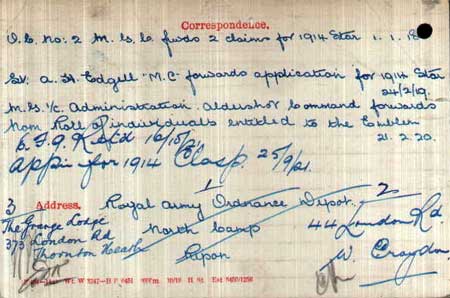 Correspondence.
O.C. No: 2 M.S.C. fwds 2 claims for 1914 Star 1.1.18
A. H. Edgell "M.C" forwards application for 1914 Star
24/2/19.
M.S. i/c. Administration. Aldershot Command forwards
Nom Roll of individuals entitled to the Emblem
21.2.20.
Appn for 1914 Clasp. 25/9/21.
1
2
3
Address.
Royal Army Ordnance Depot.
44 London Rd
The Grange Lodge
North Camp
W. Croydon
373 London Rd
Ripon
Thornton Heath